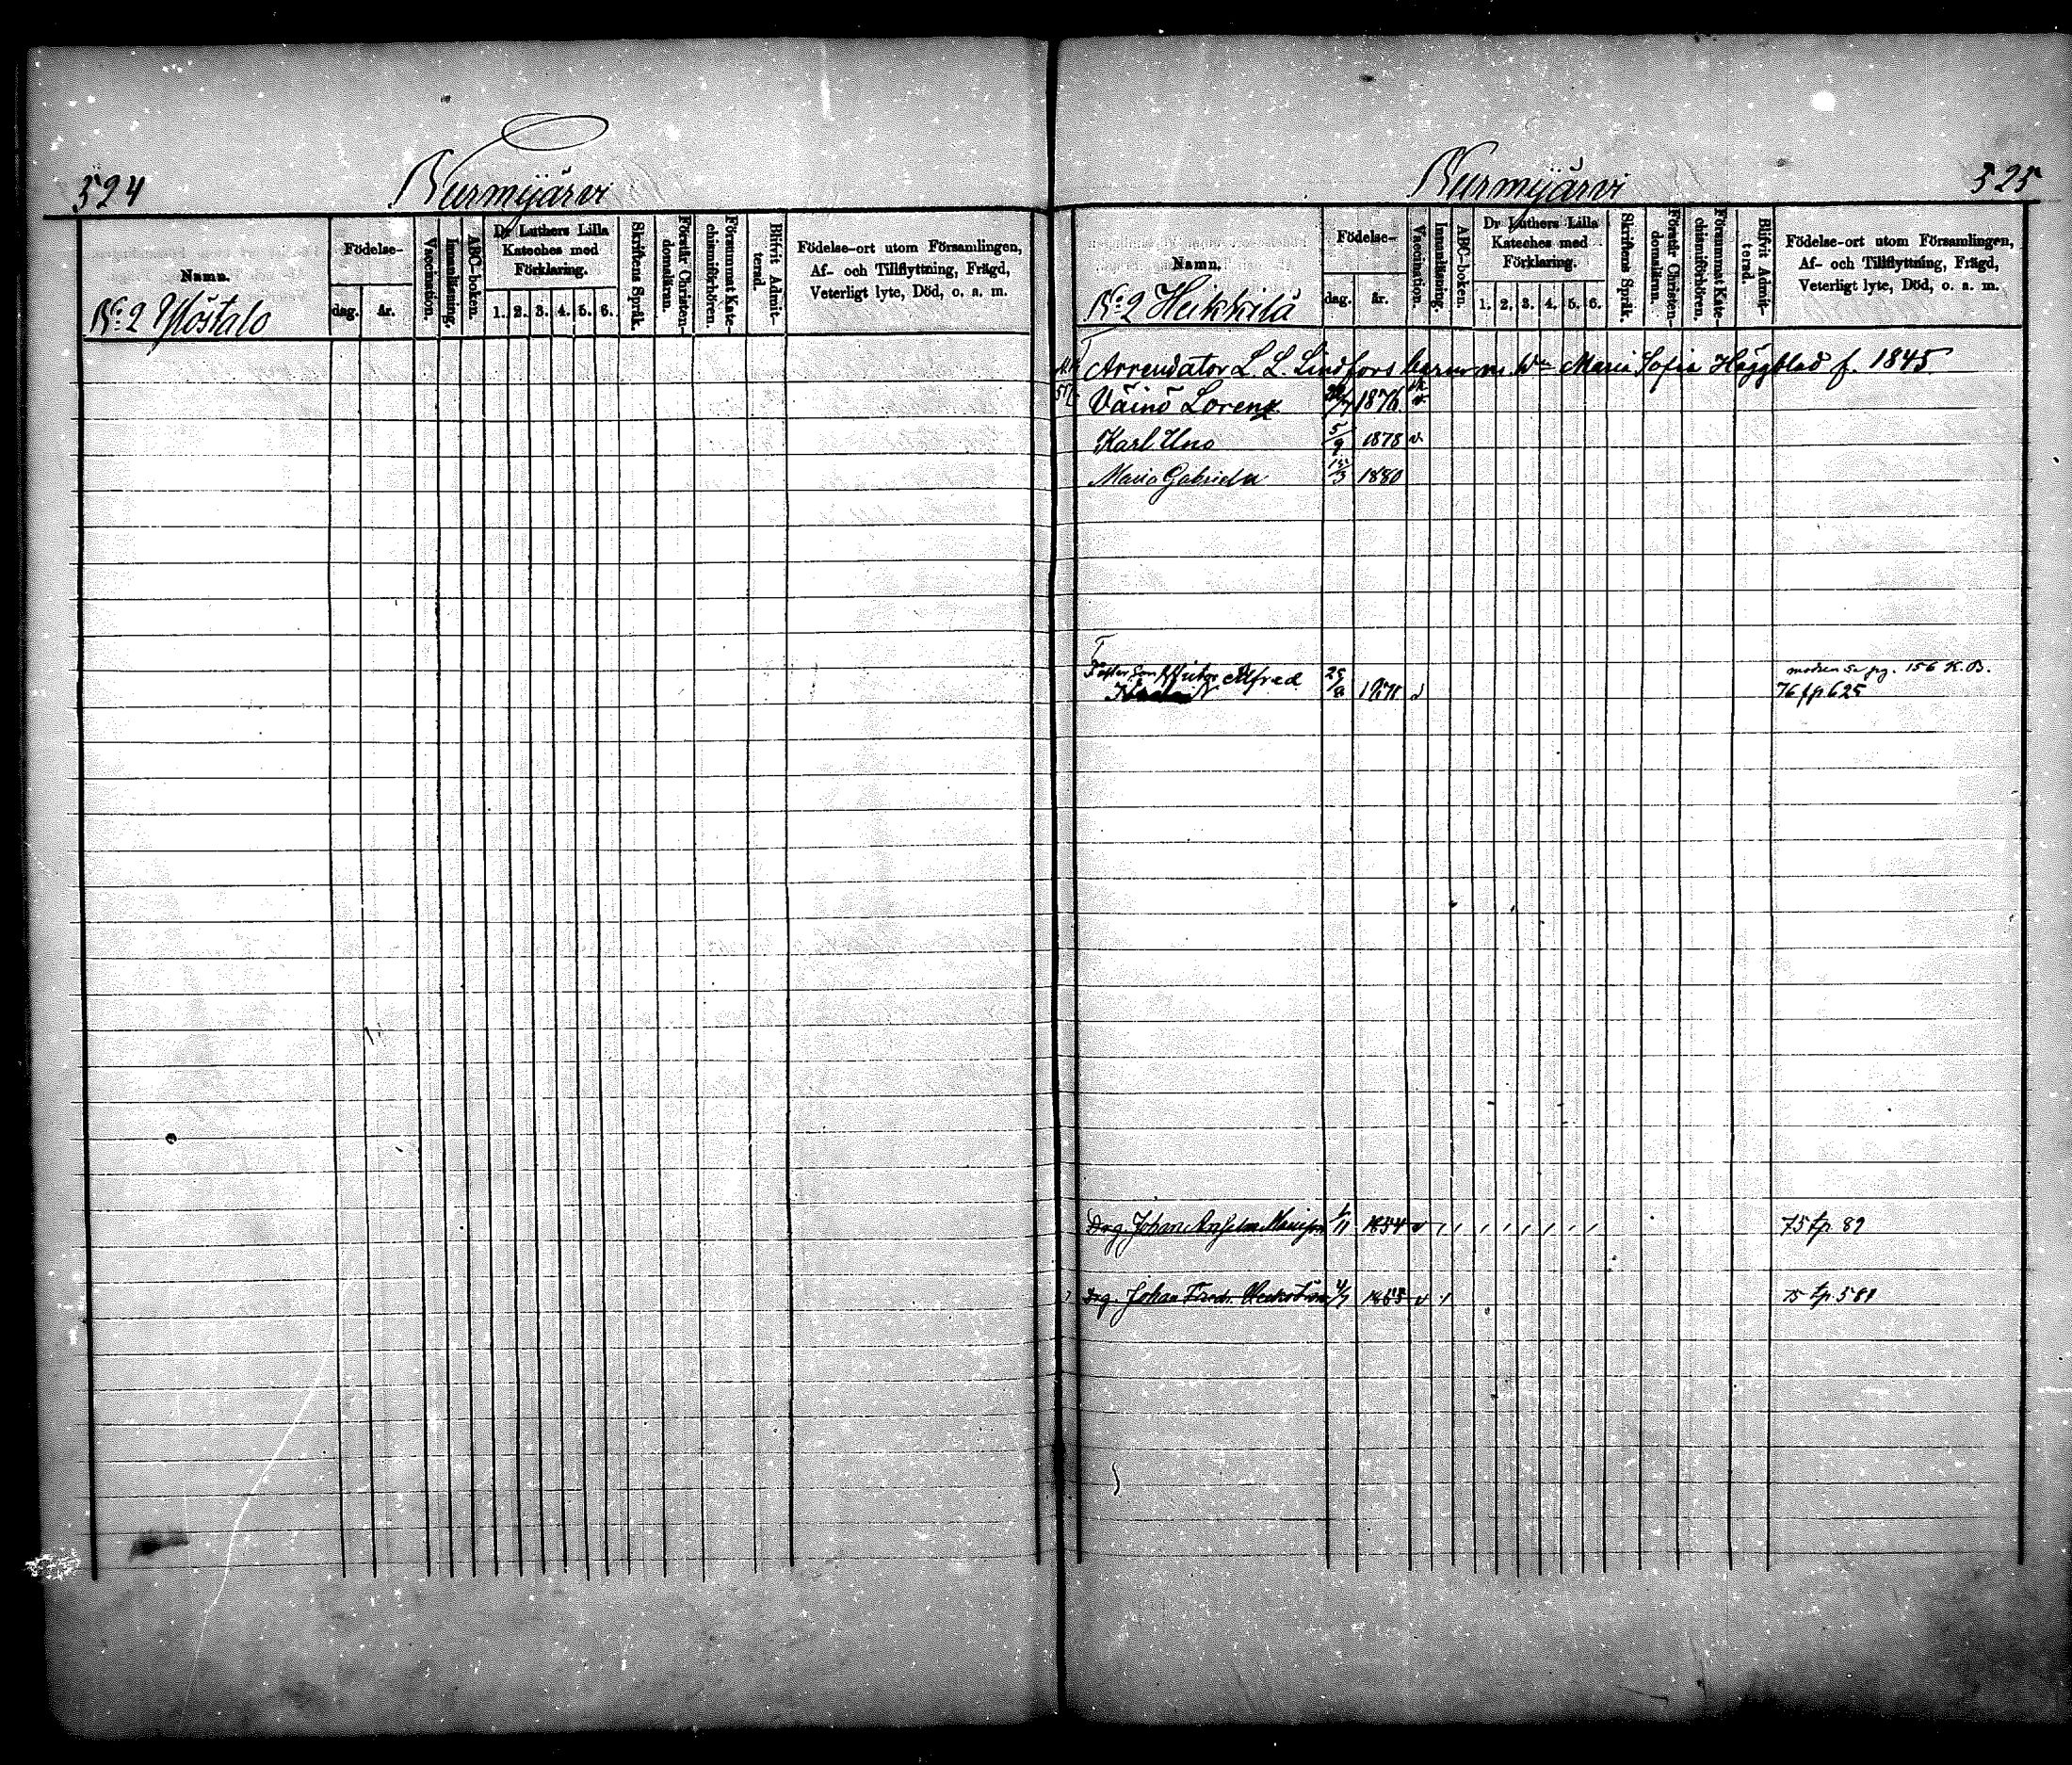 524
Nurmijärvi
Namn.
Födelse-
dag.
år.
Vaccination.
Innanläsning.
ABC-boken.
Dr Luthers Lilla
Kateches med
Förklaring.
1. 2. 3. 4. 5. 6.
Skriftens Språk.
Förstår Christen-
domsläran.
Försummat Kate-
chismiförhören.
Blifvit Admit-
terad.
Födelse-ort utom Församlingen,
Af- och Tillflyttning, Frägd,
Veterligt lyte, Död, o. a. m.
No 2 Yöstalo
Nurmijärvi
525
Namn.
Födelse-
dag.
år.
Vaccination.
Innanläsning.
ABC-boken.
Dr Luthers Lilla
Kateches med
Förklaring.
1. 2. 3. 4. 5. 6.
Skriftens Språk.
Förstår Christen-
domsläran.
Försummat Kate-
chismiförhören.
Blifvit Admit-
terad.
Födelse-ort utom Församlingen,
Af- och Tillflyttning, Frägd,
Veterligt lyte, Död, o. a. m.
No 2 Heikkilä
Arrendator L. L. Lindfors barn m. Maria Sofia Häggblad f. 1845
Väinö Lorenz 1876
Karl Uno 5/9 1878 v
Maria Gabriela 1880
Foster Son Viktor Alfred 25/8 v modren se pg. 156 K.B.
76 fr 625
Drg. Johan Anselm 1854 v 75 fp 89
Drg. Johan Fredr. 4/7 1855 v 75 fp 589